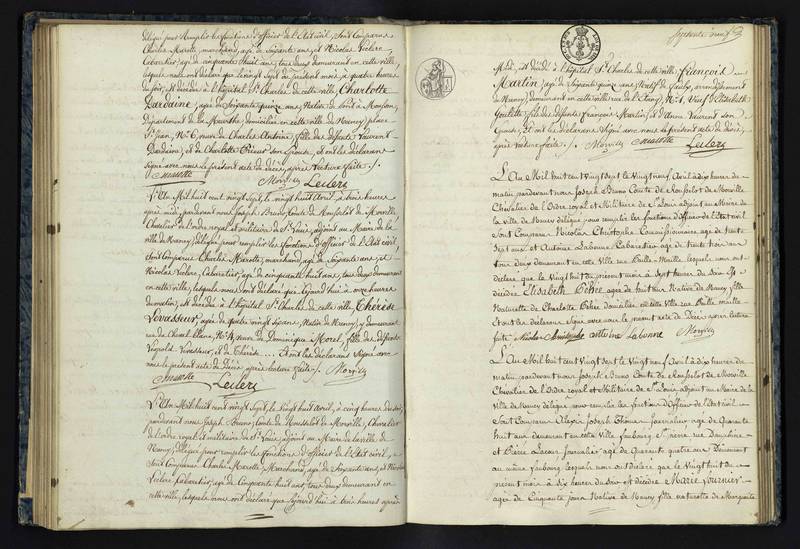 délégué pour Remplir les fonctions d'officier de l'Etat civil, Sont Comparus
Charles Marotte, marchand, agé de Soixante ans, et Nicolas Leclerc
Cabaretier, agé de cinquante huit ans, tous deux demeurant en cette ville,
lesquels nous ont déclaré que le vingt sept du présent mois, à quatre heures
du soir, est décédée à l'hôpital St Charles de cette ville, Charlotte
Dardaine, agée de Soixante quinze ans, Native de Pont à Mousson,
Département de la Meurthe, domiciliée en cette ville de Nancy, place
St Jean, No 6, veuve de Charles Antoine, fille des défunts Laurent
Dardaine, et de Charlotte son Epouse, et ont les déclarans
Signé avec nous le présent acte de décès, après lecture faite ./.
Marotte Morville Leclerc
L'An Mil huit cent vingt Sept, le vingt huit Avril, à trois heures
après midi, pardevant nous Joseph Bruno Comte de Rousselot de Morville,
Chevalier de l'ordre royal et militaire de St Louis, adjoint au Maire de la
ville de Nancy, délégué pour remplir les fonctions d'officier de l'Etat civil,
Sont Comparus Charles Marotte, marchand, agé de Soixante ans, et
Nicolas Leclerc, Cabaretier, agé de cinquante huit ans, tous deux demeurant
en cette ville, lesquels nous ont déclaré que Cejourd'hui à onze heures
du matin, est décédée à l'hôpital St Charles de cette ville, Thérèse
Levasseur, agée de quatre vingt Sept ans, Native de Nancy, y demeurant
rue du Cheval blanc, No 4, veuve de Dominique Morel, fille des défunts
Léopold Levasseur, et de Thérèse ... et ont les déclarans Signé avec
nous le présent acte de Décès, après lecture faite ./. Morville
Marotte
Leclerc
L'An Mil huit cent vingt Sept, le vingt huit Avril, à cinq heures du soir,
pardevant nous Joseph Bruno Comte de Rousselot de Morville, Chevalier
de l'ordre royal et militaire de St Louis, adjoint au Maire de la ville de
Nancy, délégué pour remplir les fonctions d'officier de l'Etat civil,
Sont Comparus Charles Marotte, Marchand, agé de Soixante ans, et Nicolas
Leclerc, Cabaretier, agé de Cinquante huit ans, tous deux demeurant en
cette ville, lesquels nous ont déclaré que Cejourd'hui à trois heures après
Midi, est décédé à l'hôpital St Charles de cette ville, François
Martin, agé de Soixante ans, Natif de arrondissement
de Nancy, demeurant en cette ville rue de l'Etang, No 1, Veuf d'Elisabeth
fils des défunts François Martin, et d'Anne Laurent son
Epouse, et ont les déclarans Signé avec nous le présent acte de décès,
après lecture faite ./. Morville Marotte Leclerc
L'An Mil huit cent Vingt Sept le Vingt neuf Avril à dix heures du
matin pardevant nous Joseph Bruno Comte de Rousselot de Morville
Chevalier de l'Ordre royal et Militaire de St Louis adjoint au Maire de
la Ville de Nancy délégué pour remplir les fonctions d'Officier de l'Etat civil
Sont Comparus Nicolas Christophe Commissionnaire agé de trente
Sept ans et Antoine Labonne Cabaretier agé de trente trois ans
tous deux demeurant en cette ville rue lesquels nous ont
déclaré que le Vingt huit du présent mois à Sept heures du Soir Est
décédée Elisabeth agée de huit ans Native de Nancy fille
Naturelle de Charlotte domiciliée en cette ville rue
Et ont les déclarans Signé avec nous le présent acte de Décès après lecture
faite Nicolas Christophe antoine Labonne Morville
L'An Mil huit cent Vingt Sept le Vingt neuf Avril à dix heures du
matin pardevant nous Joseph Bruno Comte de Rousselot de Morville
Chevalier de l'Ordre royal et Militaire de St Louis adjoint au Maire de la
Ville de Nancy délégué pour remplir les fonctions d'Officier de l'Etat civil
Sont Comparus Joseph journalier agé de Quarante
huit ans demeurant en cette Ville faubourg St Pierre rue
et Pierre Lacour Journalier agé de Quarante quatre ans Demeurant
au même faubourg lesquels nous ont déclaré que le Vingt huit du
présent mois à Six heures du Soir est décédée Marie Fournier
agée de Cinquante Native de Nancy fille naturelle de Marguerite